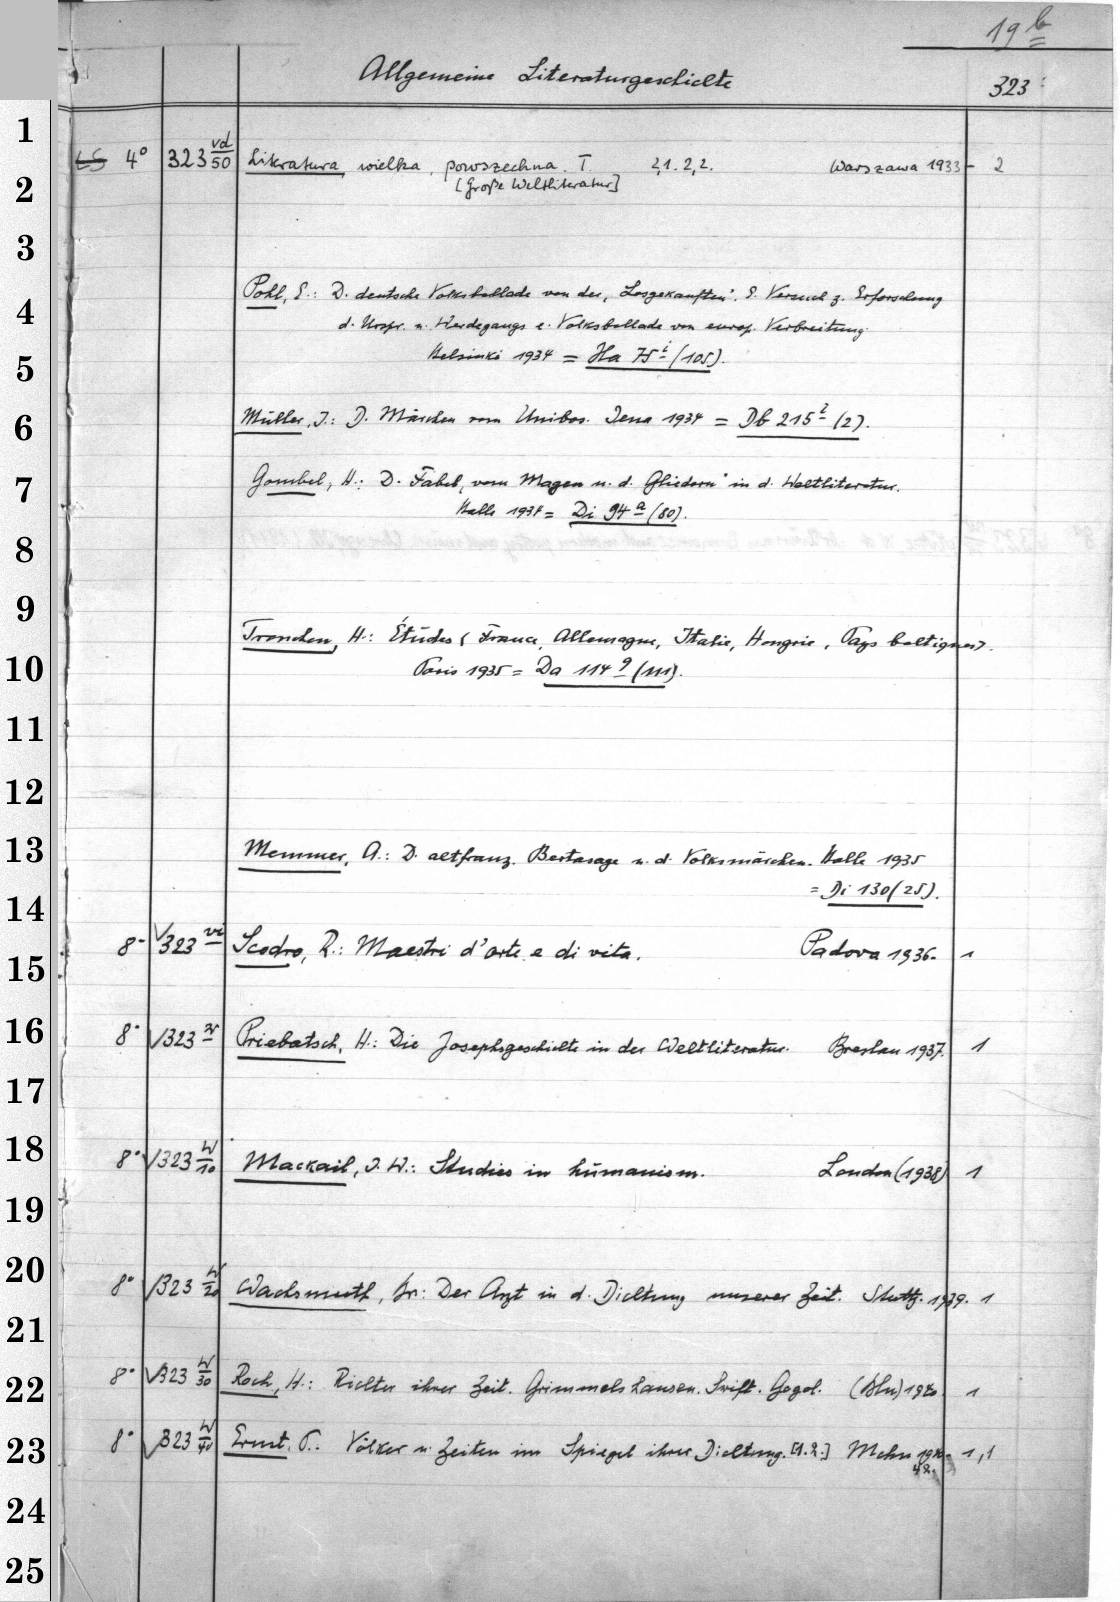 19 b
Allgemeine Literaturgeschichte 323
1
LS 4° 323 vd/50 Literatura wielka, powszechna. T. 2,1. 2,2. Warszawa 1933- 2
2 [Große Weltliteratur]
3
Pohl, E.: D. deutsche Volksballade von der „Losgekauften". E. Versuch z. Erforschung
4 d. Urspr. u. Werdegangs e. Volksballade von europ. Verbreitung.
5 Helsinki 1934 = Ha 75 i (105).
6 Müller, J.: D. Märchen vom Unibos. Jena 1934 = Db 215 i (2).
7 Gombel, H.: D. Fabel „vom Magen u. d. Gliedern" in d. Weltliteratur.
Halle 1934 = Di 94 a (80).
8
9
Tronchon, H.: Études (France, Allemagne, Italie, Hongrie, Pays baltiques).
10 Paris 1935 = Da 114 g (111).
11
12
13 Memmer, A.: D. altfranz. Bertasage u. d. Volksmärchen. Halle 1935
= Di 130 (25).
14
8° 323 vi Scodro, R.: Maestri d'arte e di vita. Padova 1936. 1
15
16 8° 323 Priebatsch, H.: Die Josephsgeschichte in der Weltliteratur. Breslau 1937. 1
17
18 8° 323 W/10 Mackail, J. W.: Studies in humanism. London (1938) 1
19
20 8° 323 W/20 Wachsmuth, Br.: Der Arzt in d. Dichtung unserer Zeit. Stuttg. 1939. 1
21
22 8° 323 W/30 Roch, H.: Richter ihrer Zeit. Grimmelshausen. Swift. Gogol. (Bln) 1940. 1
23 8° 323 W/40 Ernst, P.: Völker u. Zeiten im Spiegel ihrer Dichtung. [1. 2.] Mchn 1940- 1,1
42.
24
25